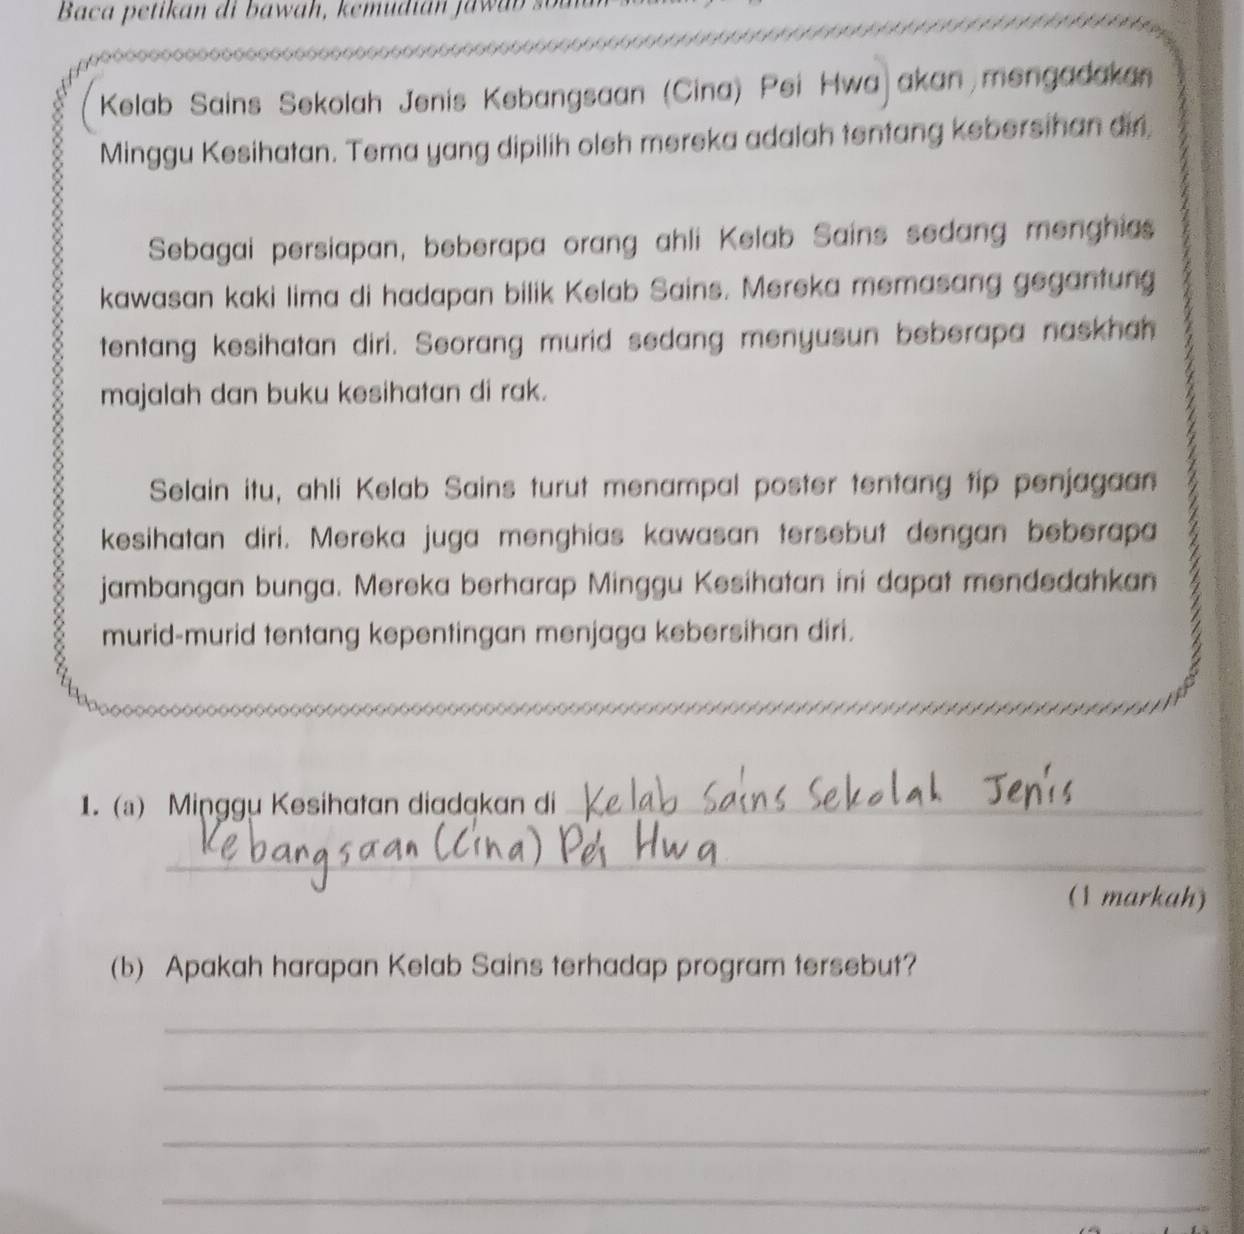 Baca petikan di bawah, kemudian jawab
Kelab Sains Sekolah Jenis Kebangsaan (Cina) Pei Hwa) akan mengadakan
Minggu Kesihatan. Tema yang dipilih oleh mereka adalah tentang kebersihan diri.
Sebagai persiapan, beberapa orang ahli Kelab Sains sedang menghias
kawasan kaki lima di hadapan bilik Kelab Sains. Mereka memasang gegantung
tentang kesihatan diri. Seorang murid sedang menyusun beberapa naskhah
majalah dan buku kesihatan di rak.
Selain itu, ahli Kelab Sains turut menampal poster tentang tip penjagaan
kesihatan diri. Mereka juga menghias kawasan tersebut dengan beberapa
jambangan bunga. Mereka berharap Minggu Kesihatan ini dapat mendedahkan
murid-murid tentang kepentingan menjaga kebersihan diri.
1. (a) Minggu Kesihatan diadakan di Kelab Sains Sekolah Jenis
Kebangsaan (Cina) Pei Hwa
(1 markah)
(b) Apakah harapan Kelab Sains terhadap program tersebut?